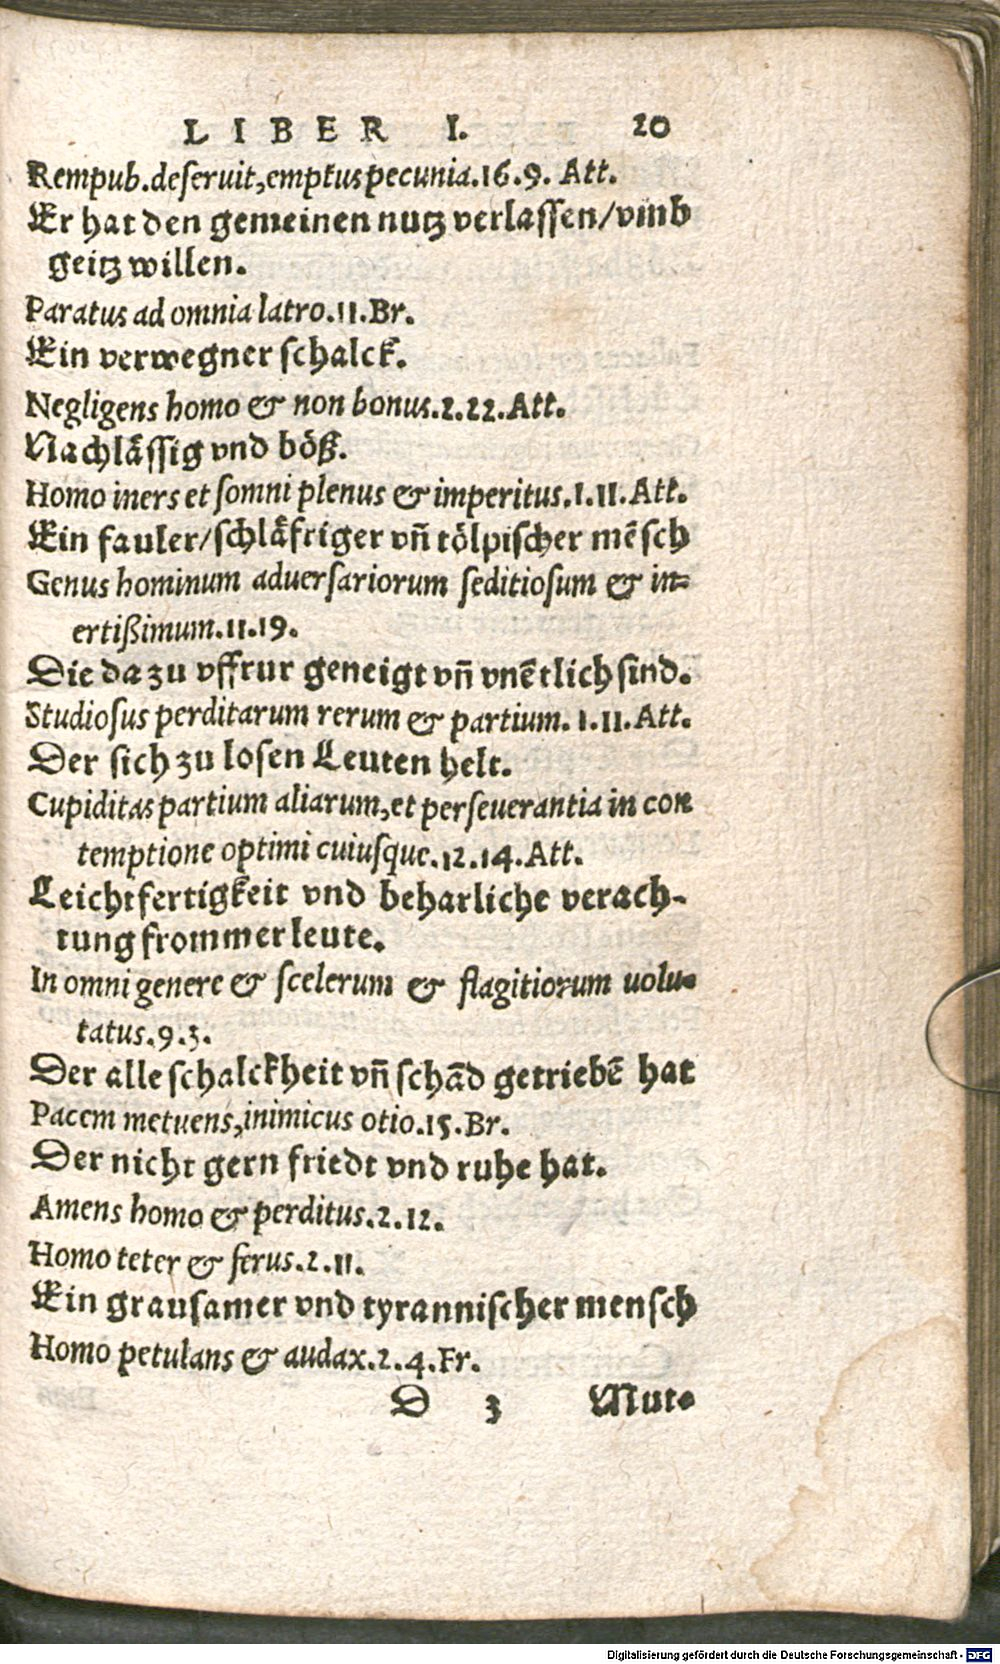 LIBER I. 20
Rempub.deſeruit,emptus pecunia.16.9. Att.
Er hat den gemeinen nutz verlaſſen/vmb
geitz willen.
Paratus ad omnia latro.11.Br.
Ein verwegner ſchalck.
Negligens homo & non bonus.2.22.Att.
Nachlaͤſſig vnd boͤß.
Homo iners et ſomni plenus & imperitus.1.11.Att.
Ein fauler/ſchlaͤfriger vñ toͤlpiſcher mẽſch
Genus hominum aduerſariorum ſeditioſum & in-
ertißimum.11.19.
Die da zu vffrur geneigt vñ vnẽtlich ſind.
Studioſus perditarum rerum & partium. 1.11.Att.
Der ſich zu loſen Leuten helt.
Cupiditas partium aliarum,et perſeuerantia in con
temptione optimi cuiuſque.12.14.Att.
Leichtfertigkeit vnd beharliche verach-
tung frommer leute.
In omni genere & ſcelerum & flagitiorum uolu-
tatus.9.3.
Der alle ſchalckheit vñ ſchãd getriebẽ hat
Pacem metuens,inimicus otio.15.Br.
Der nicht gern friedt vnd ruhe hat.
Amens homo & perditus.2.12.
Homo teter & ferus.2.11.
Ein grauſamer vnd tyranniſcher menſch
Homo petulans & audax.2.4.Fr.
D 3 Mut-
Digitalisierung gefördert durch die Deutsche Forschungsgemeinschaft - DFG